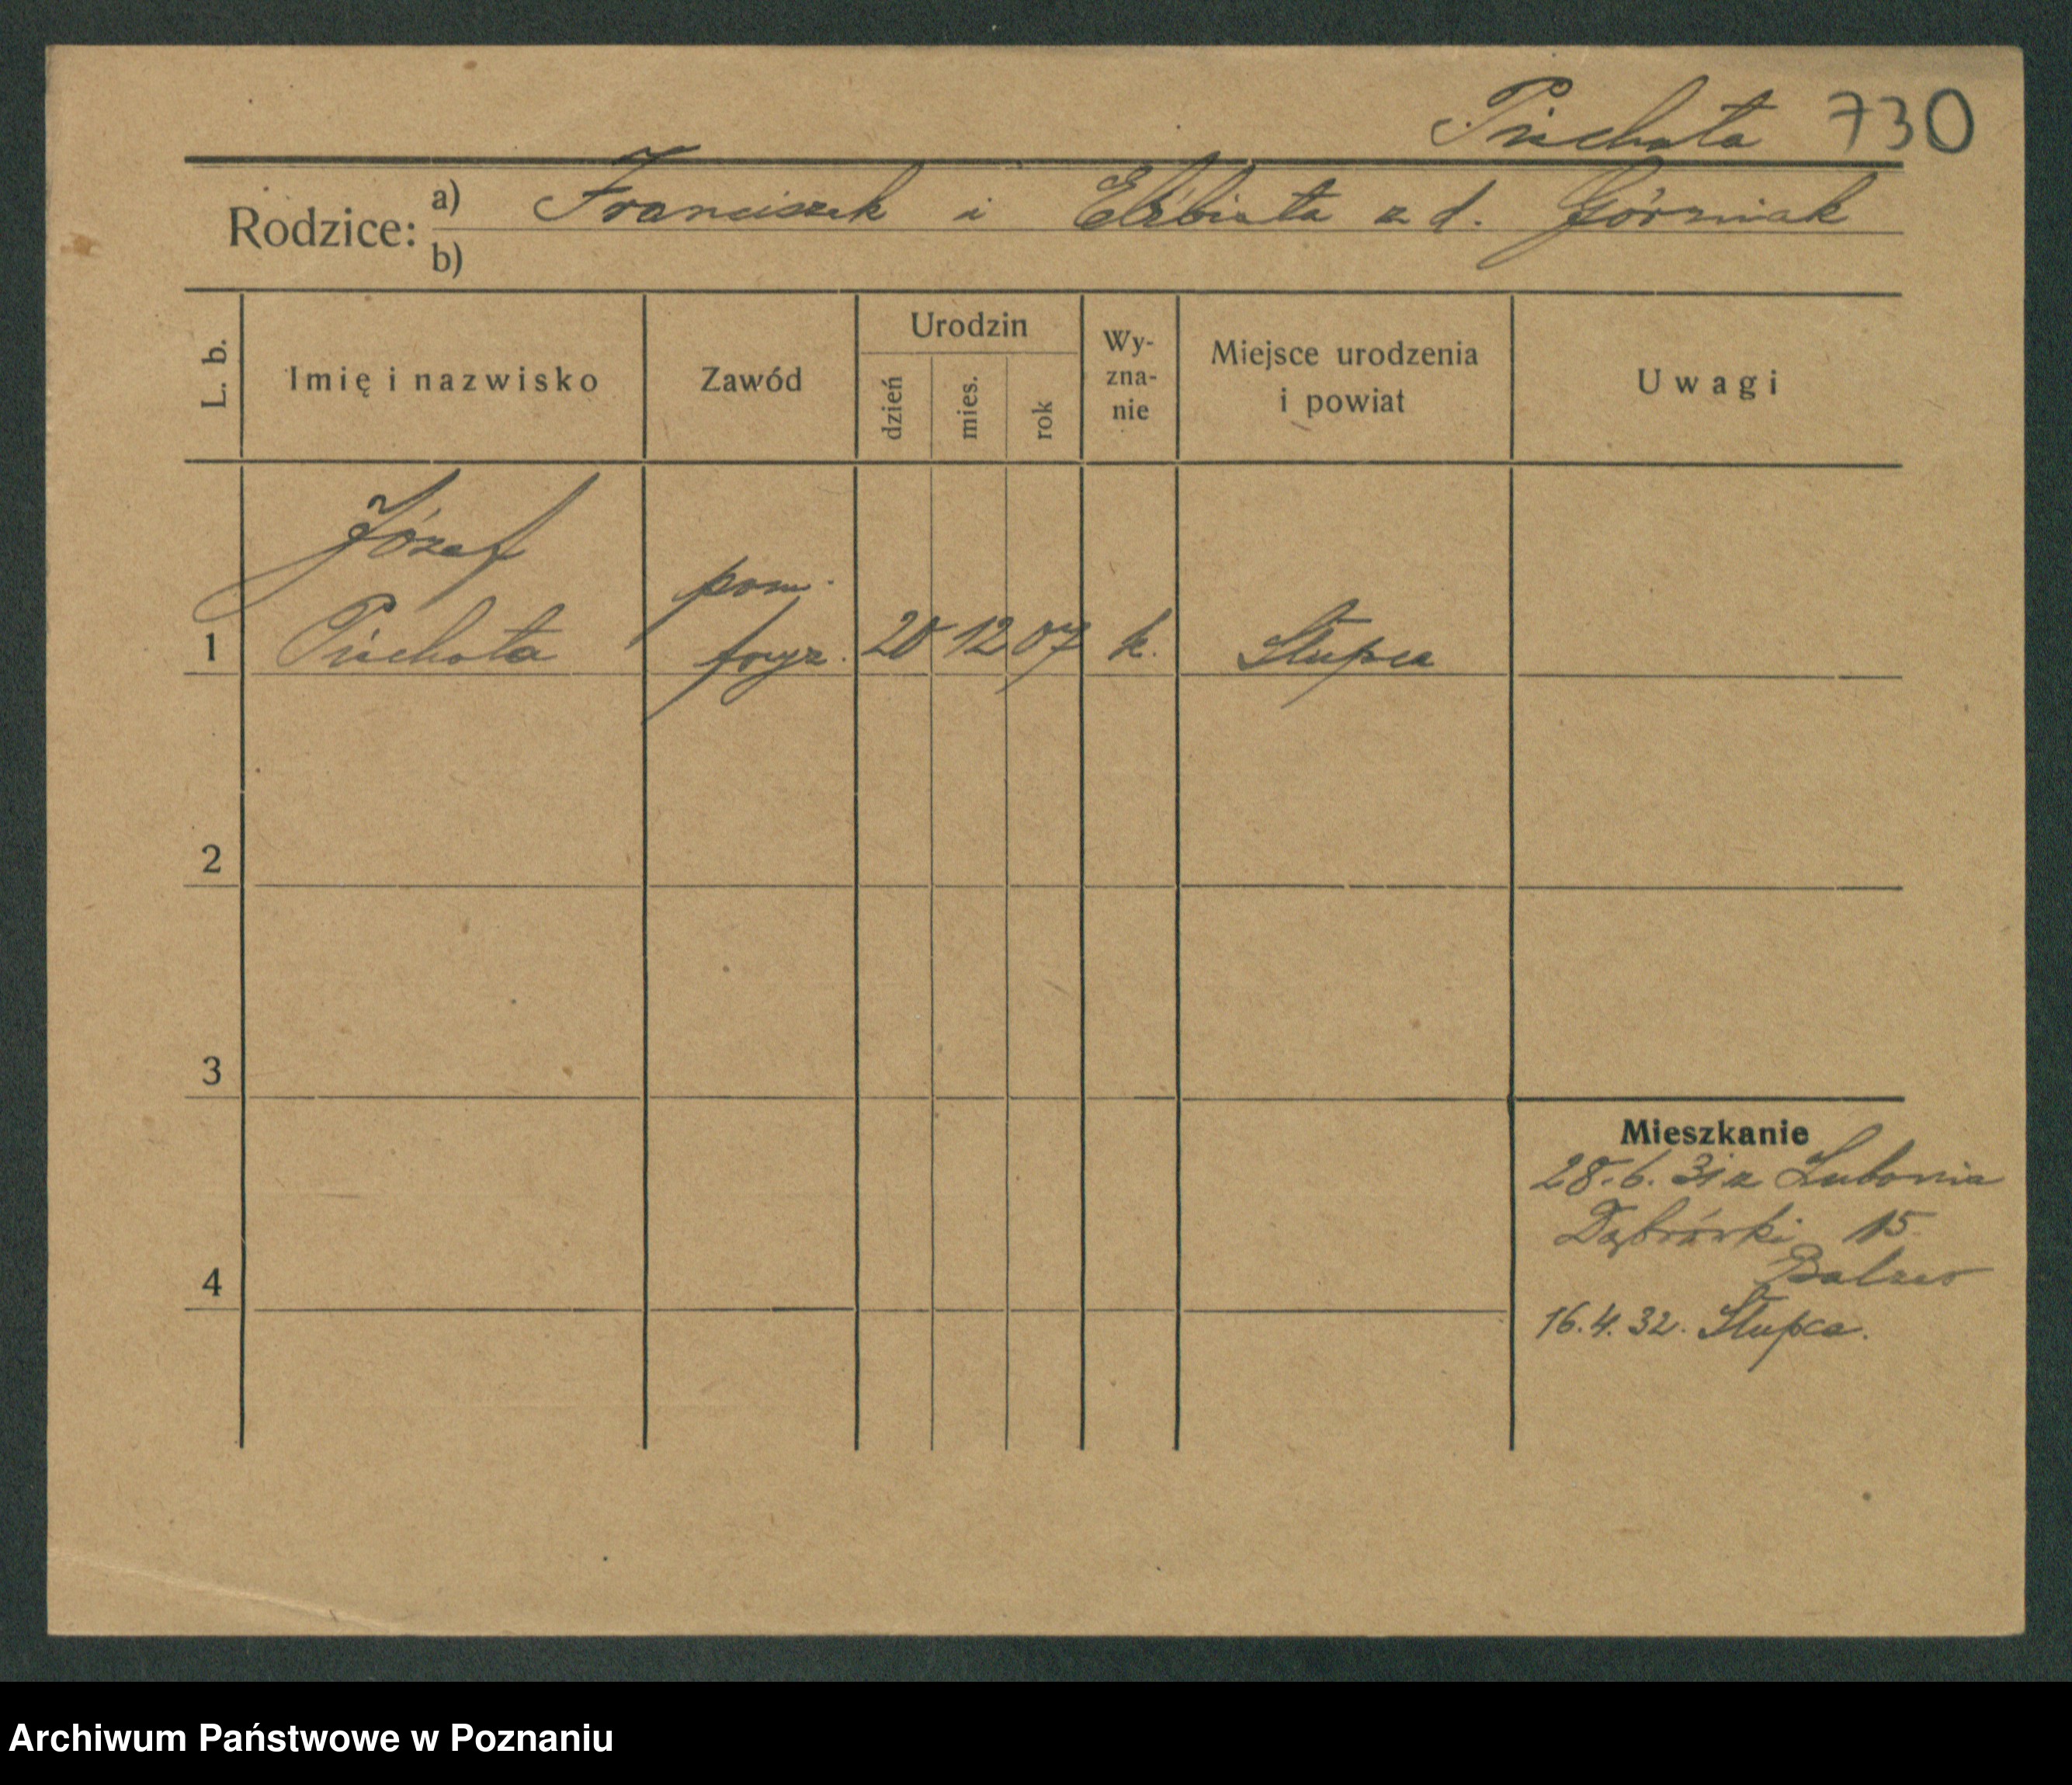 Piechota 730
Rodzice: a) Franciszek i Elżbieta z d. Górniak
b)
L. b. Imię i nazwisko Zawód Urodzin dzień mies. rok Wy-zna-nie Miejsce urodzenia i powiat Uwagi
Józef pom.
1 Piechota fryz. 20 12 07 k. Słupca
2
3
Mieszkanie
28.6.31 z Lubonia
Dąbrówki 15
4
16.4.32. Słupca.
Archiwum Państwowe w Poznaniu